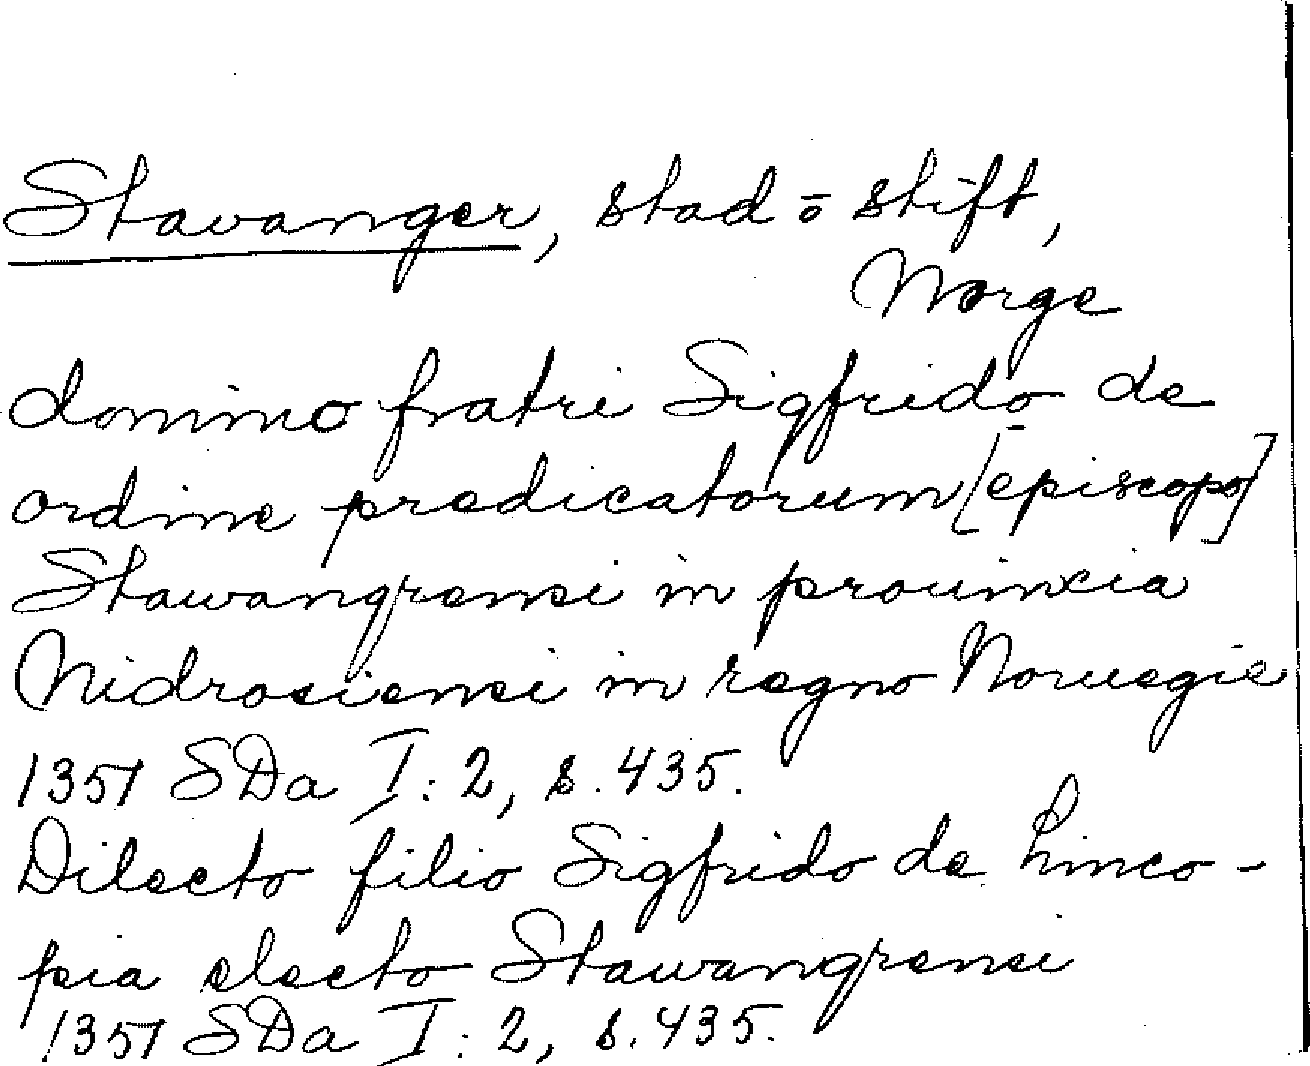 Stavanger, stad o stift,
Norge
domino fratri Sigfrido de
ordine predicatorum [episcopo]
Stawangrensi in prouincia
Nidrosiensi in regno Noruegie
1351 SDa I:2, s. 435.
Dilecto filio Sigfrido de Linco-
pia electo Stawangrensi
1351 SDa I:2, s. 435.